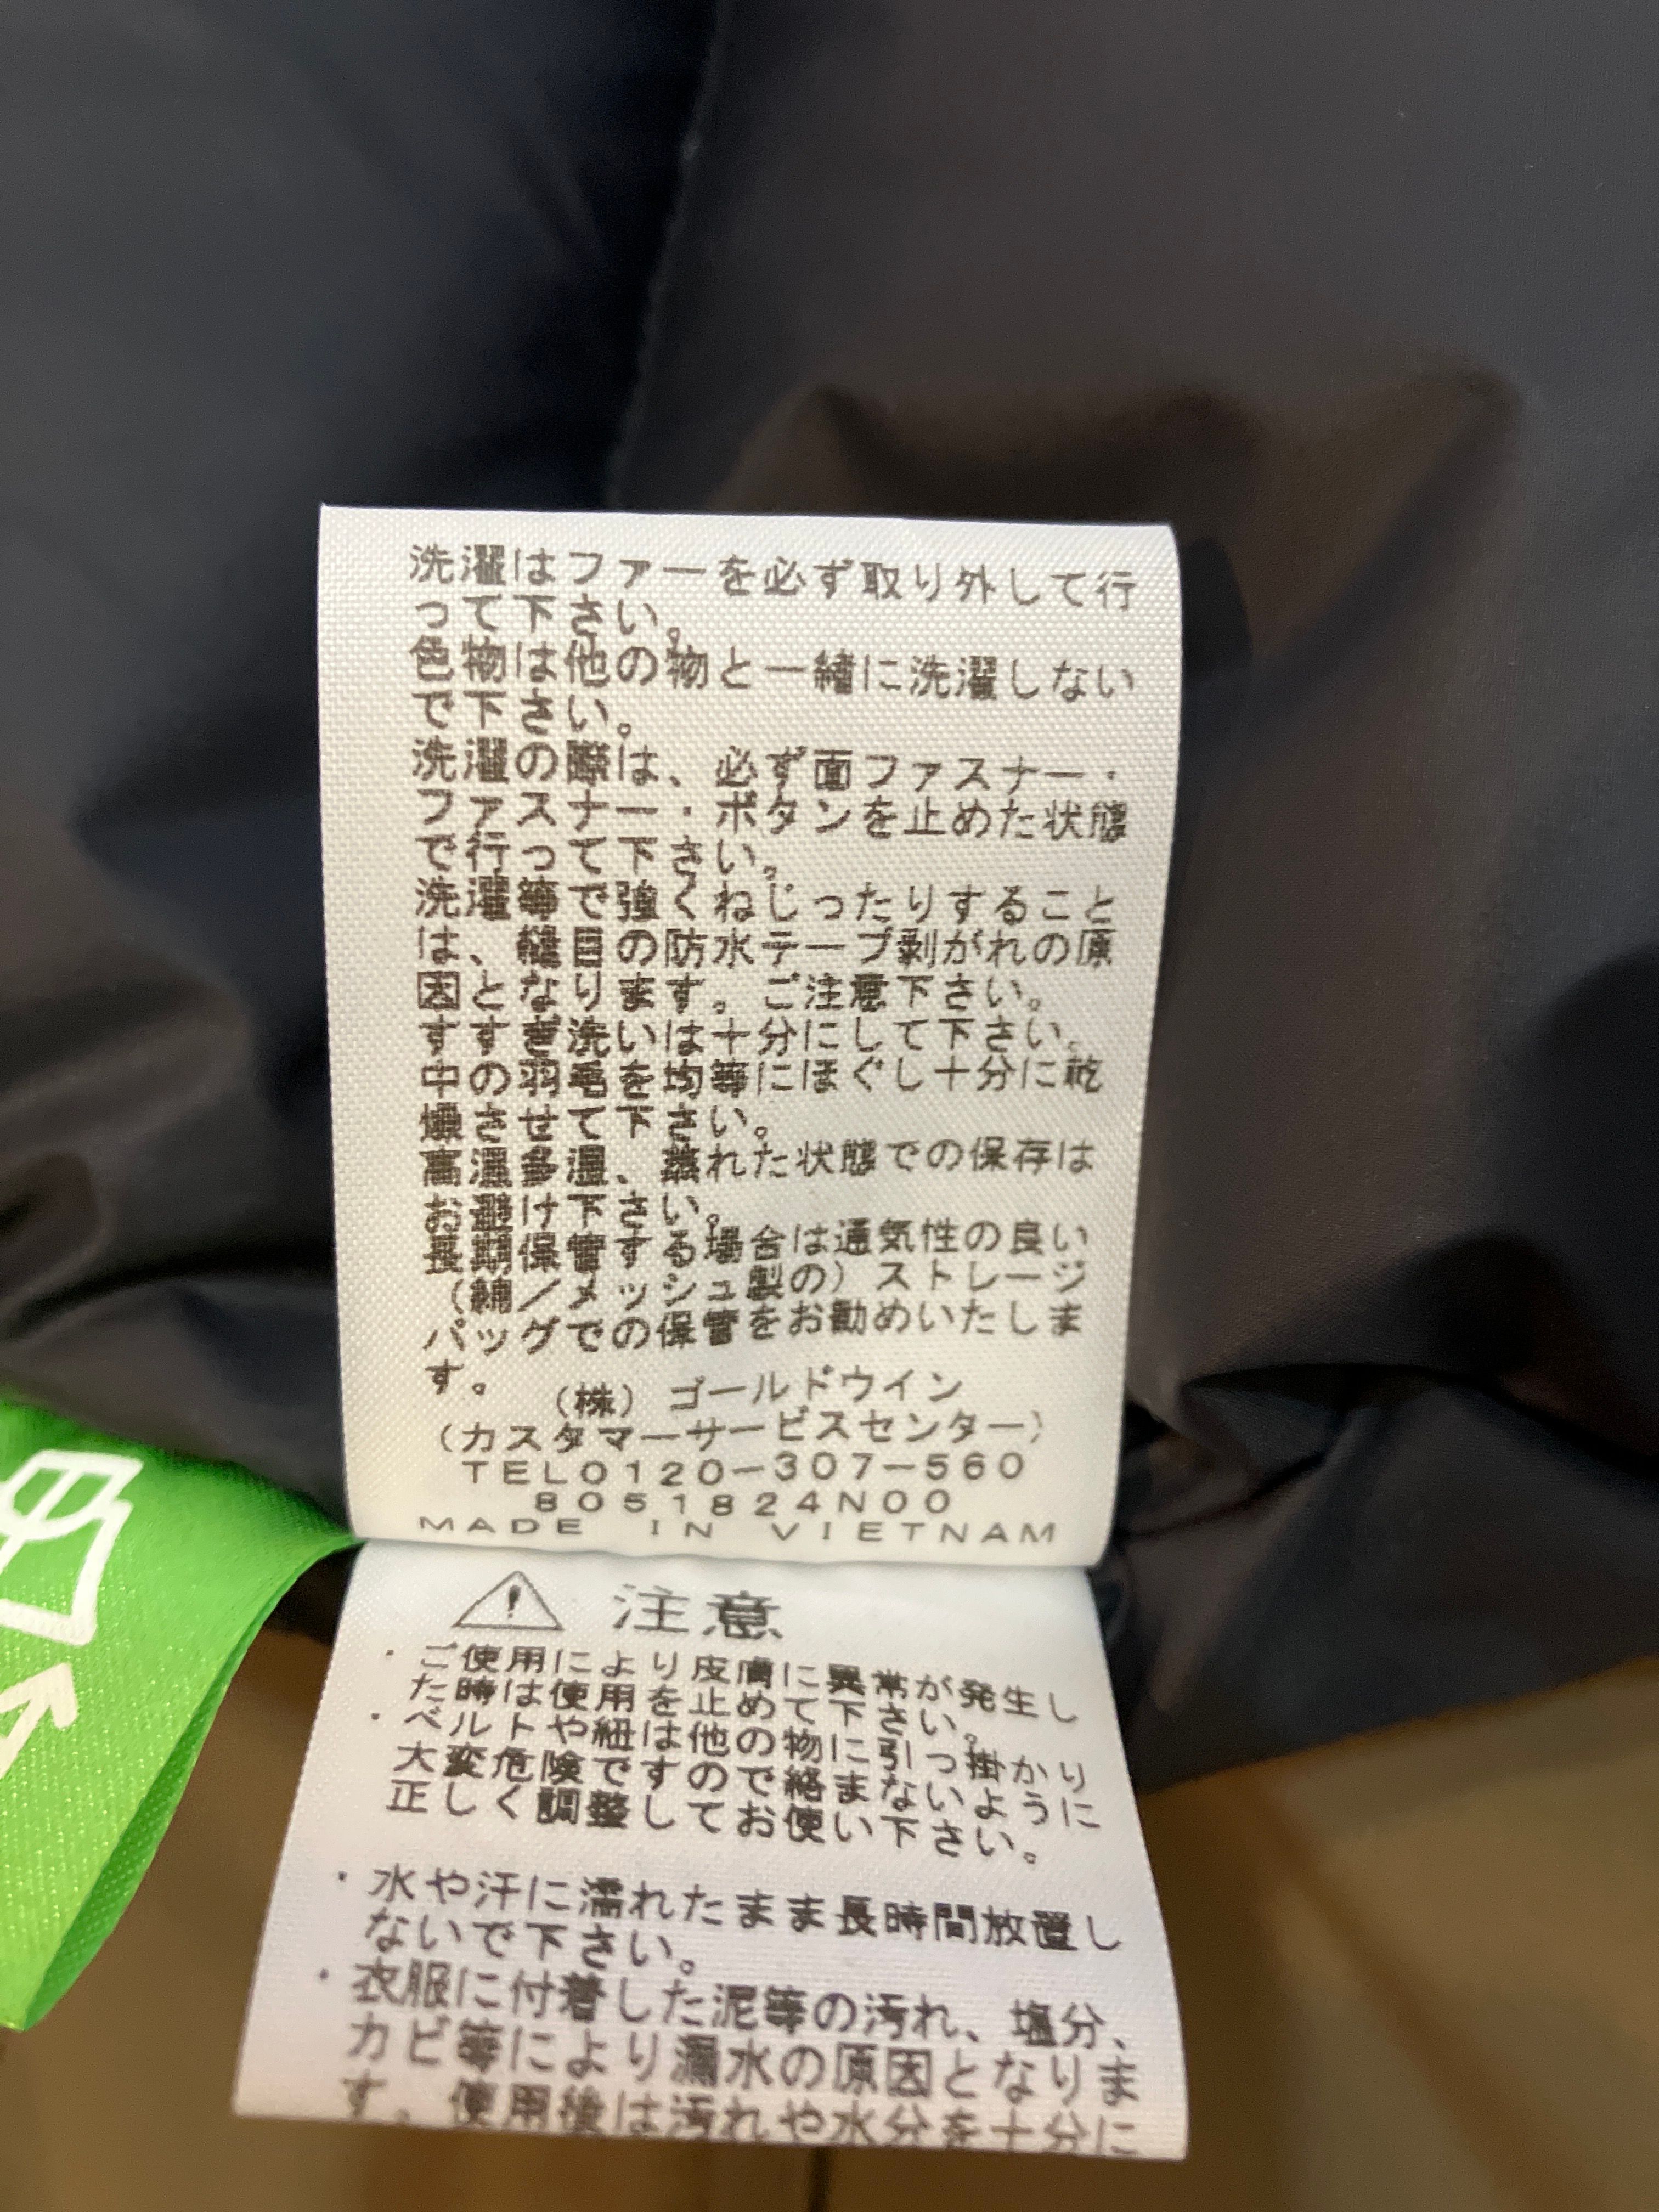 洗濯はファーを必ず取り外して行
って下さい。
色物は他の物と一緒に洗濯しない
で下さい。
洗濯の際は、必ず面ファスナー・
ファスナー・ボタンを止めた状態
で行って下さい。
洗濯等で強くねじったりすること
は、縫目の防水テープ剥がれの原
因となります。ご注意下さい。
すすぎ洗いは十分にして下さい。
中の羽毛を均等にほぐし十分に乾
燥させて下さい。
高温多湿、蒸れた状態での保存は
お避け下さい。
長期保管する場合は通気性の良い
(綿/メッシュ製の)ストレージ
バッグでの保管をお勧めいたしま
す。
(株)ゴールドウイン
(カスタマーサービスセンター)
TEL0120-307-560
8051824N00
MADE IN VIETNAM
注意
・ご使用により皮膚に異常が発生し
た時は使用を止めて下さい。
・ベルトや紐は他の物に引っ掛かり
大変危険ですので絡まないように
正しく調整してお使い下さい。
・水や汗に濡れたまま長時間放置し
ないで下さい。
・衣服に付着した泥等の汚れ、塩分、
カビ等により漏水の原因となりま
す。使用後は汚れや水分を十分に